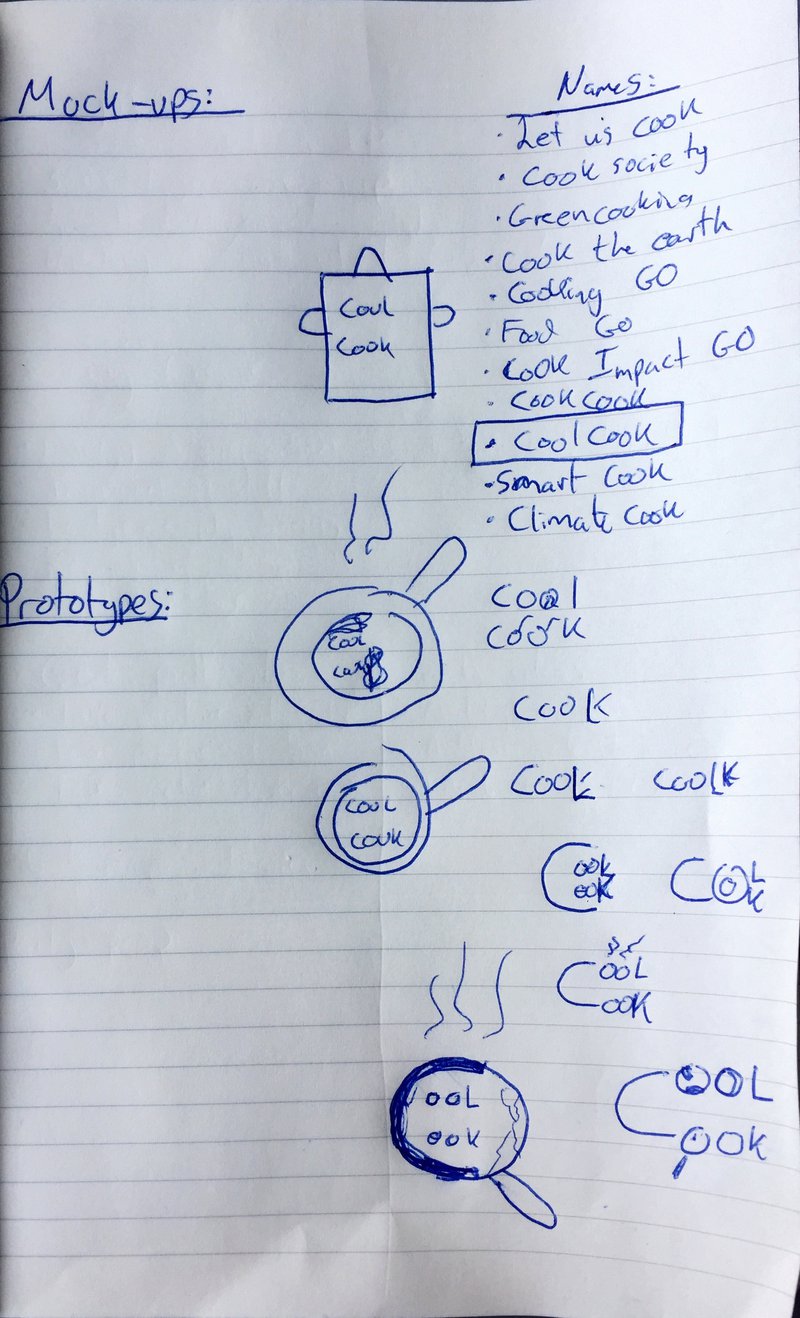 Mock-ups:
Names:
• Let us cook
• Cook society
• Greencooking
• Cook the earth
• Cooking GO
• Food GO
• Cook Impact GO
• CookCook
• CoolCook
• Smart Cook
• Climate Cook
Cool
Cook
Prototypes:
Cool
Cook
Cool
Cook
COOK
COOL
COOK
COOK
COOLK
COOK
OOK
COL
K
COOL
OOK
OOL
OOK
COOL
OOK